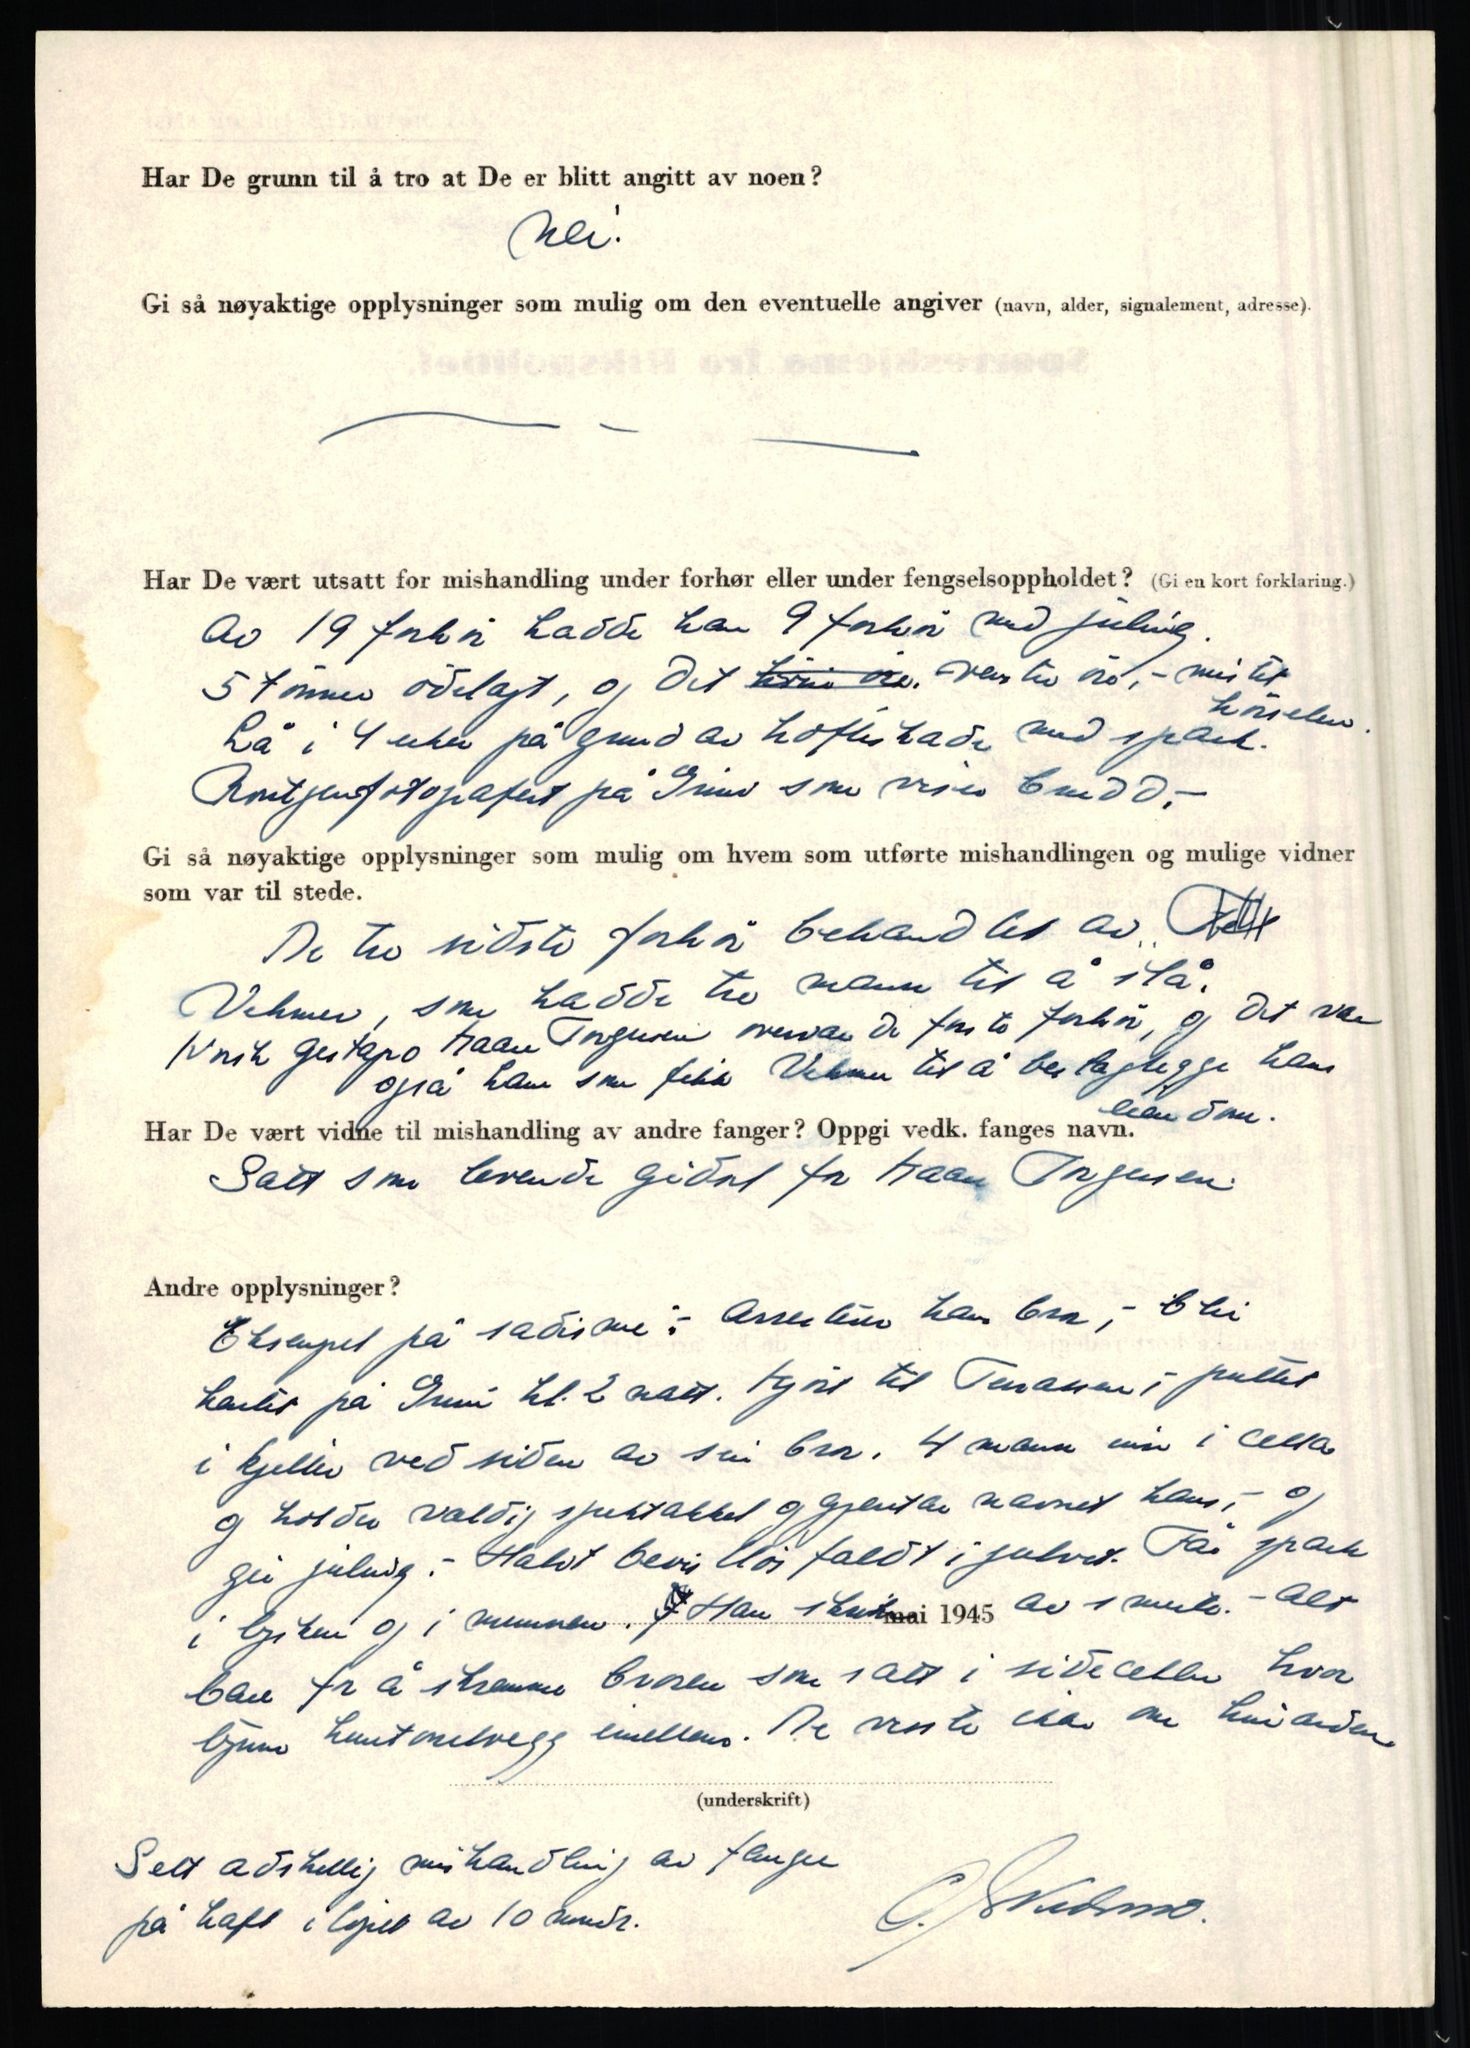 Har De grunn til å tro at De er blitt angitt av noen?
Nei!
Gi så nøyaktige opplysninger som mulig om den eventuelle angiver (navn, alder, signalement, adresse).
Har De vært utsatt for mishandling under forhør eller under fengselsoppholdet? (Gi en kort forklaring.)
Av 19 forhör hadde han 9 forhör med juling.
5 tenner ödelagt, og det venstre öre, - mistet
hörselen.
Lå i 4 uker på grund av hofteskade med spark.
Røntgenfotografert på Grini som viser brudd. -
Gi så nøyaktige opplysninger som mulig om hvem som utførte mishandlingen og mulige vidner
som var til stede.
De tre sidste forhör behandlet av
Vehmer, som hadde tre mann til å slå.
Norsk Gestapo Kaare Torgersen overvar de første forhör, og det var
også han som fikk Vehmer til å beslaglegge hans
eiendom.
Har De vært vidne til mishandling av andre fanger? Oppgi vedk. fanges navn.
Satt som levende gidsel for Kaare Torgersen.
Andre opplysninger?
Eksempel på sadisme: - Arresterer hans bror, - blir
hentet på Grini kl. 2 natt. Kjört til Terassen, - puttet
i kjeller ved siden av sin bror. 4 mann inn i cella
og holder valdig spektakkel og gjentar navnet hans, - og
gir juling. - Halvt bevistlös faldt i gulvet. Får spark
i lysken og i munnen. Han skriker av smerte. - Alt
mai 1945
bare for å skremme broren som satt i sidecellen hvor
tynn kartonvegg imellem. De visste ikke om hinanden.
(underskrift)
Sett adskellig mishandling av fanger
på haft i löpet av 10 mndr.